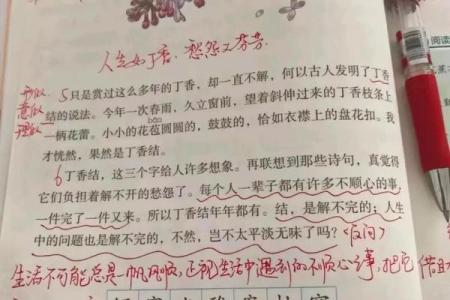 人生如丁香，愁怨又芬芳
形似
意似
理似
5只是赏过这么多年的丁香，却一直不解，何以古人发明了丁香
结的说法。今年一次春雨，久立窗前，望着斜伸过来的丁香枝条上
一柄花蕾。小小的花苞圆圆的，鼓鼓的，恰如衣襟上的盘花扣。我
bāo
才恍然，果然是丁香结。
6丁香结，这三个字给人许多想象。再联想到那些诗句，真觉得
它们负担着解不开的愁怨了。每个人一辈子都有许多不顺心的事，
一件完了一件又来。所以丁香结年年都有。结，是解不完的；人生
中的问题也是解不完的，不然，岂不太平淡无味了吗？（反问）
生活不可能总是一帆风顺，正视生活中遇到的不顺心之事，把它
借且
阅读